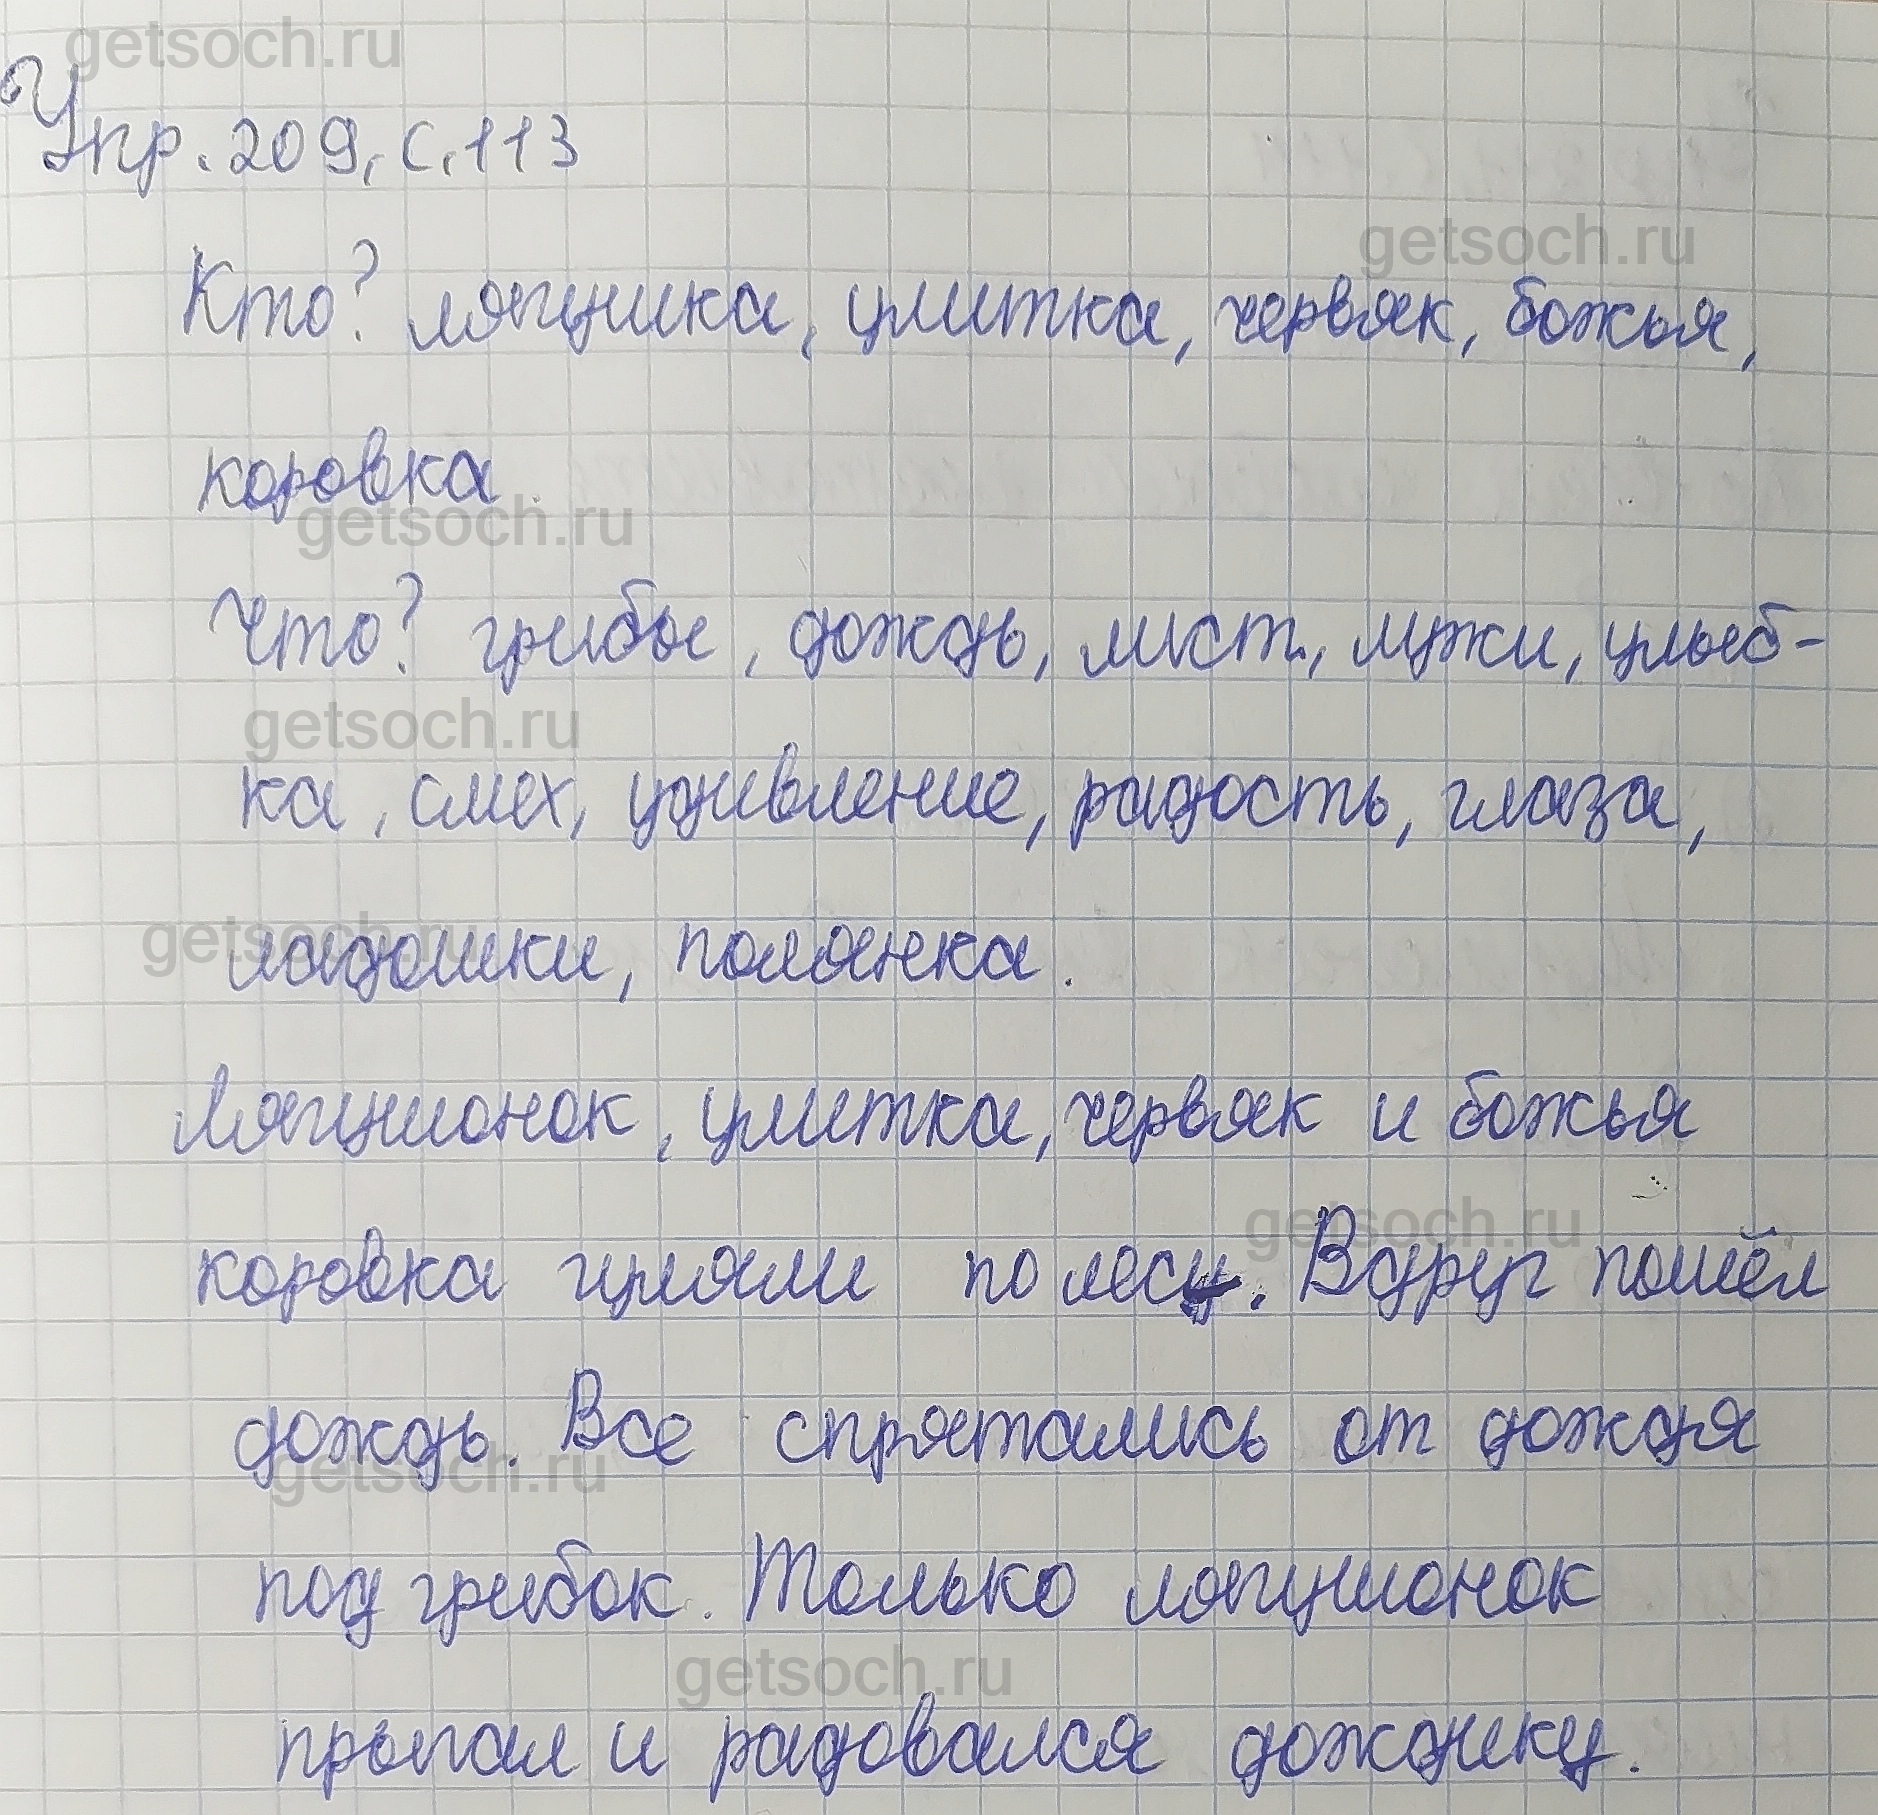 getsoch.ru
Упр. 209, с. 113
getsoch.ru
Кто? лягушка, улитка, червяк, божья,
коровка
getsoch.ru
Что? грибы, дождь, лист, лужи, улыб-
getsoch.ru
ка, смех, удивление, радость, глаза,
getsoch.ru
ладошки, полянка.
Лягушонок, улитка, червяк и божья
getsoch.ru
коровка гуляли по лесу. Вдруг пошёл
дождь. Все спрятались от дождя
getsoch.ru
под грибок. Только лягушонок
getsoch.ru
прыгал и радовался дождику.